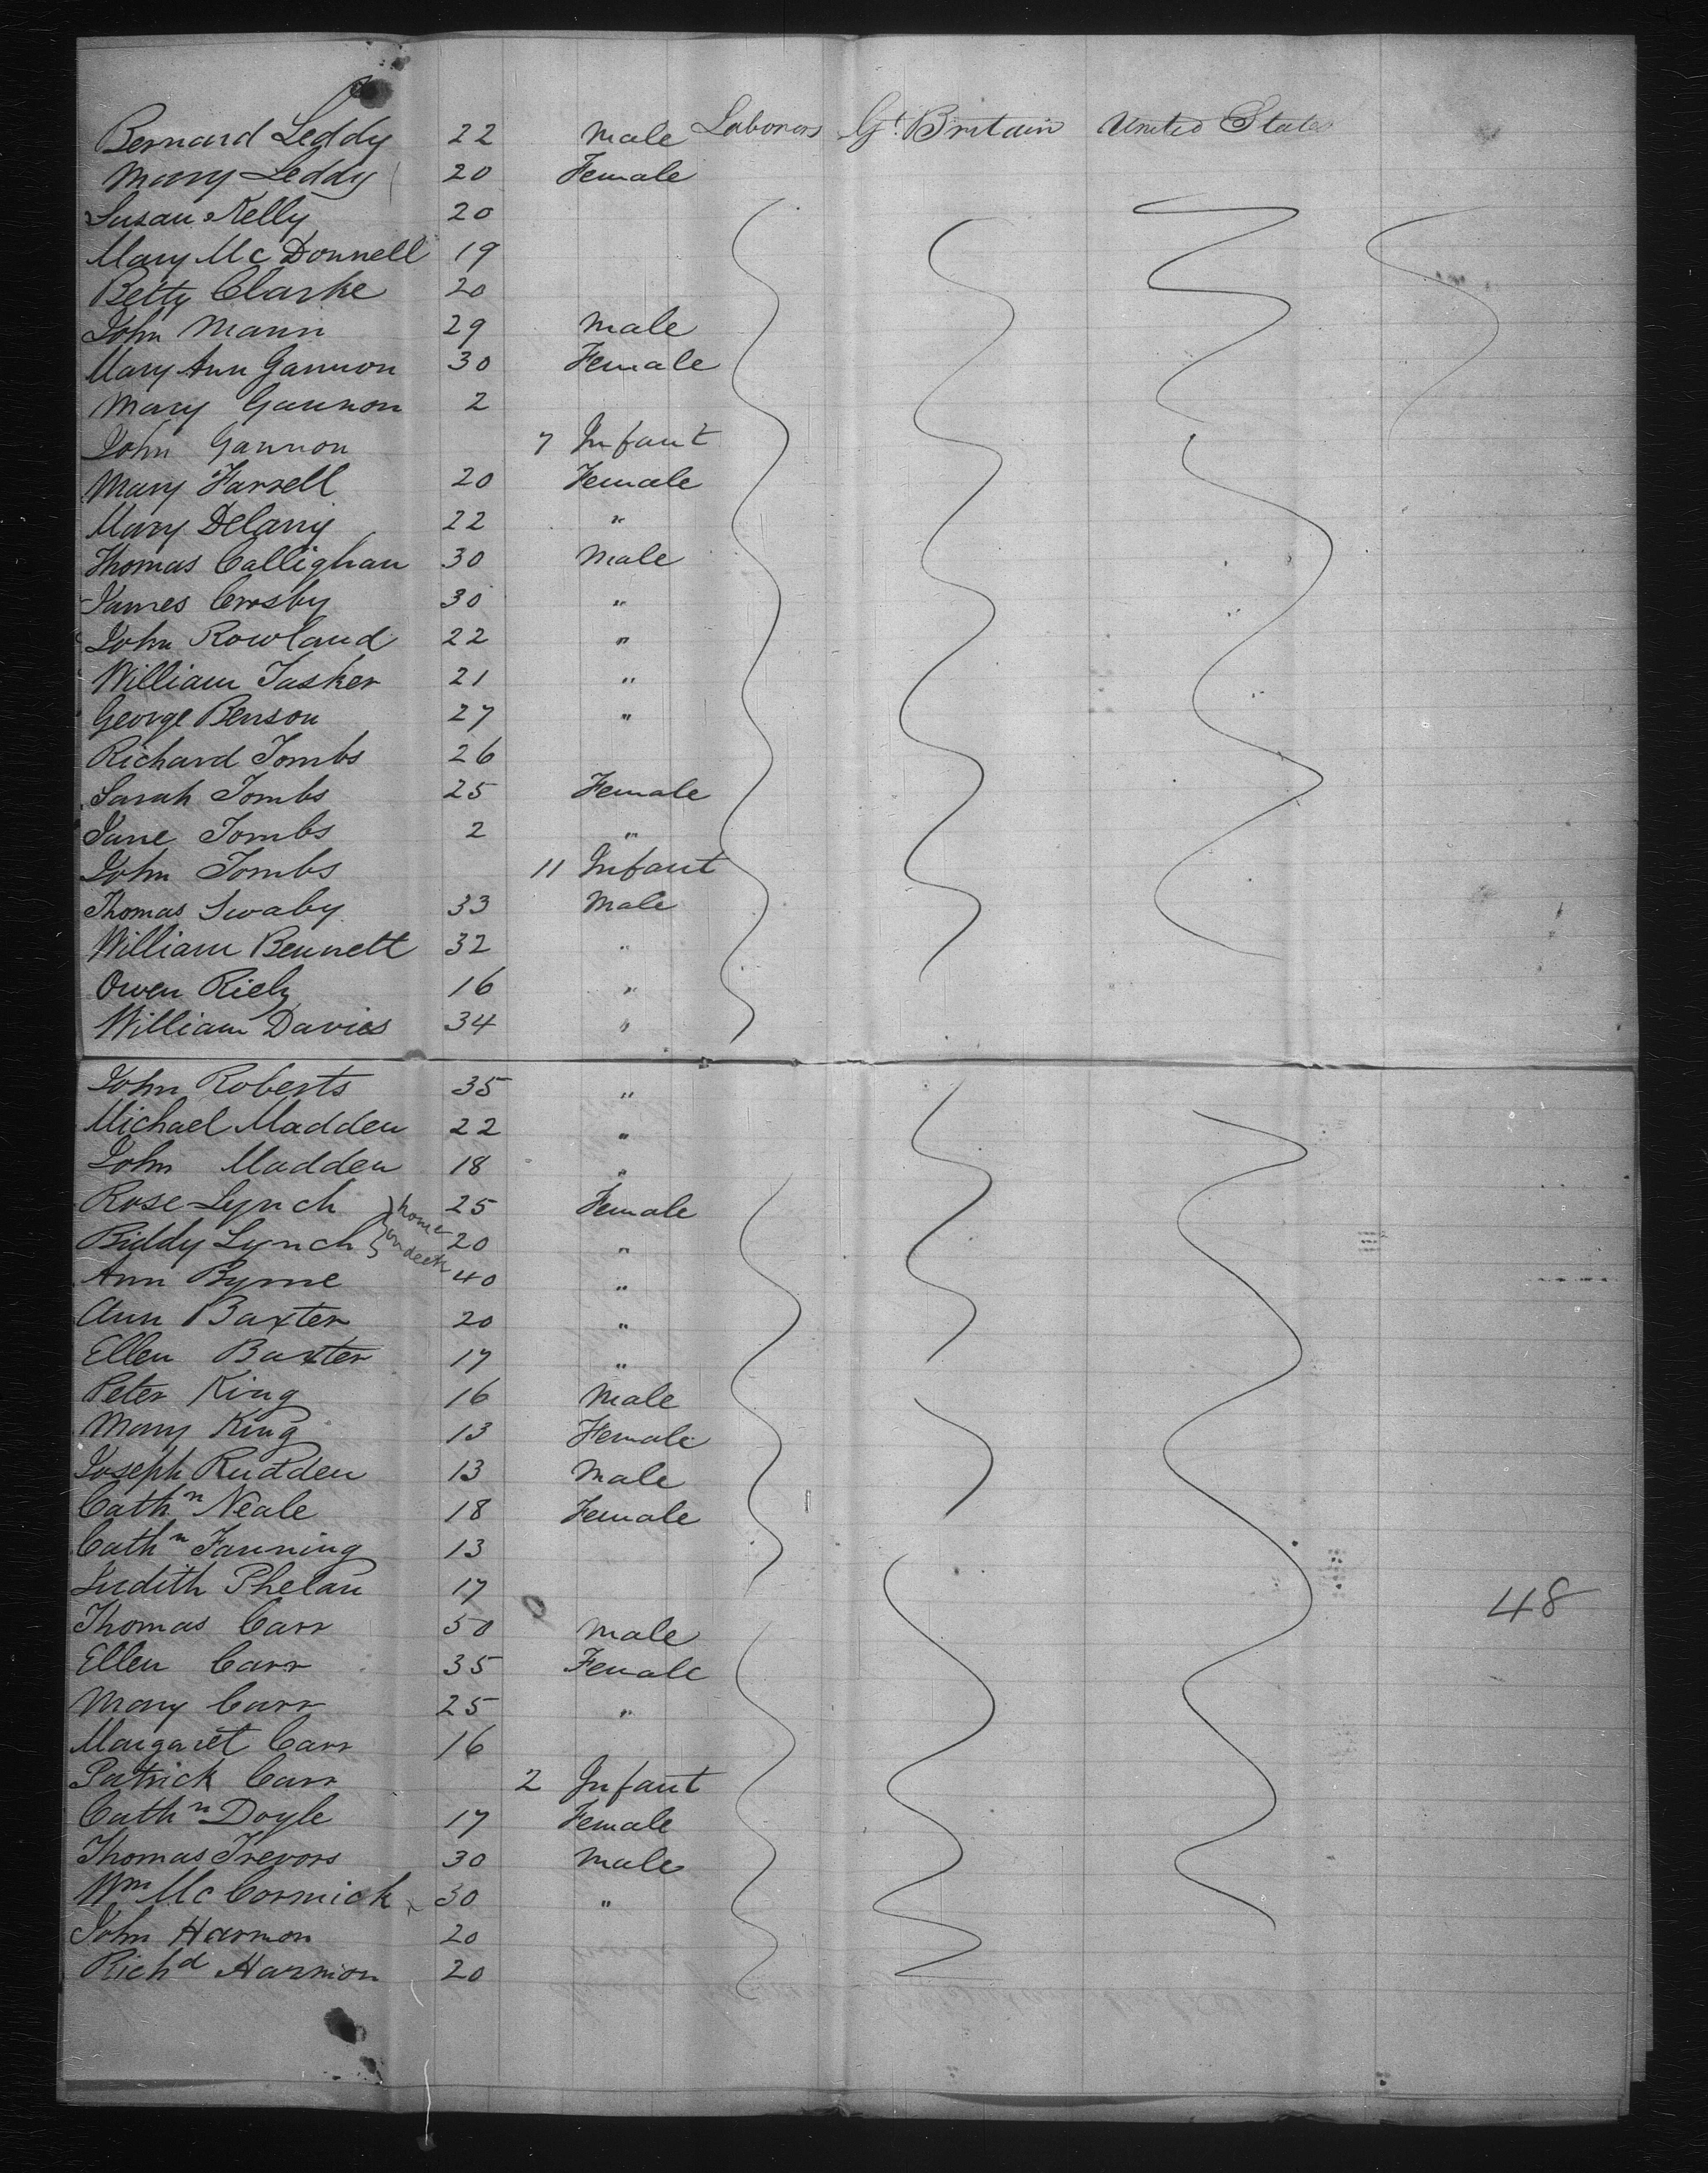 Bernard Leddy 22 Male Laborors Gt Britain United States
Mary Leddy 20 Female
Susan Kelly 20
Mary Mc Donnell 19
Betty Clarke 20
John Mann 29 Male
Mary Ann Gannon 30 Female
Mary Gannon 2
John Gannon 7 Infant
Mary Farrell 20 Female
Mary Delany 22 "
Thomas Callighan 30 Male
James Crosby 30 "
John Rowland 22 "
William Tasker 21 "
George Benson 27 "
Richard Tombs 26
Sarah Tombs 25 Female
Jane Tombs 2 "
John Tombs 11 Infant
Thomas Swaby 33 Male
William Bennett 32 "
Owen Riely 16 "
William Davies 34 "
John Roberts 35 "
Michael Madden 22 "
John Madden 18 "
Rose Lynch 25 Female
Biddy Lynch 20 "
on deck
Ann Byrne 40 "
Ann Baxter 20 "
Ellen Baxter 17 "
Peter King 16 Male
Mary King 13 Female
Joseph Rudden 13 Male
Cathn Neale 18 Female
Cathn Fanning 13
Judith Phelan 17
48
Thomas Carr 50 Male
Ellen Carr 35 Female
Mary Carr 25 "
Margaret Carr 16
Patrick Carr 2 Infant
Cathn Doyle 17 Female
Thomas Trevors 30 Male
Wm Mc Cormick 30 "
John Harmon 20
Richd Harmon 20